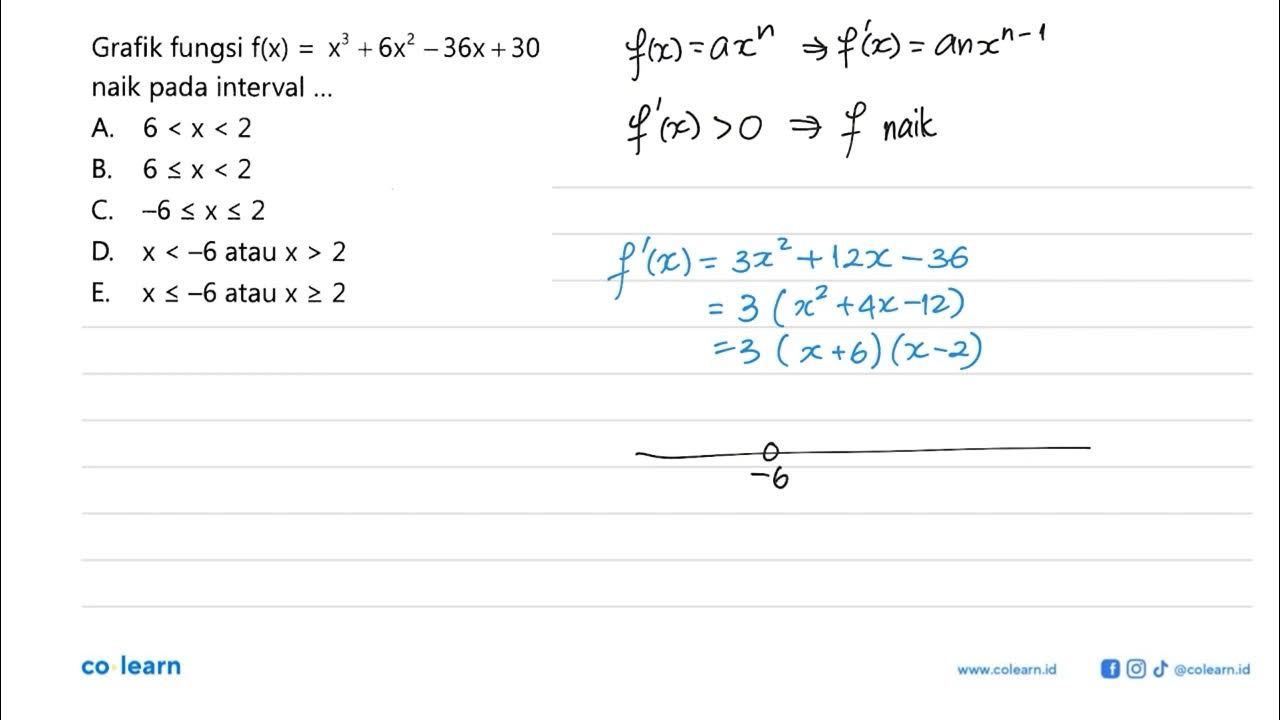 Grafik fungsi f(x) = x³ + 6x² – 36x + 30
naik pada interval ...
A. 6 < x < 2
B. 6 ≤ x < 2
C. –6 ≤ x ≤ 2
D. x < –6 atau x > 2
E. x ≤ –6 atau x ≥ 2
f(x) = axⁿ ⇒ f'(x) = anxⁿ⁻¹
f'(x) > 0 ⇒ f naik
f'(x) = 3x² + 12x – 36
= 3 (x² + 4x – 12)
= 3 (x + 6) (x – 2)
–6
co learn
www.colearn.id
@colearn.id